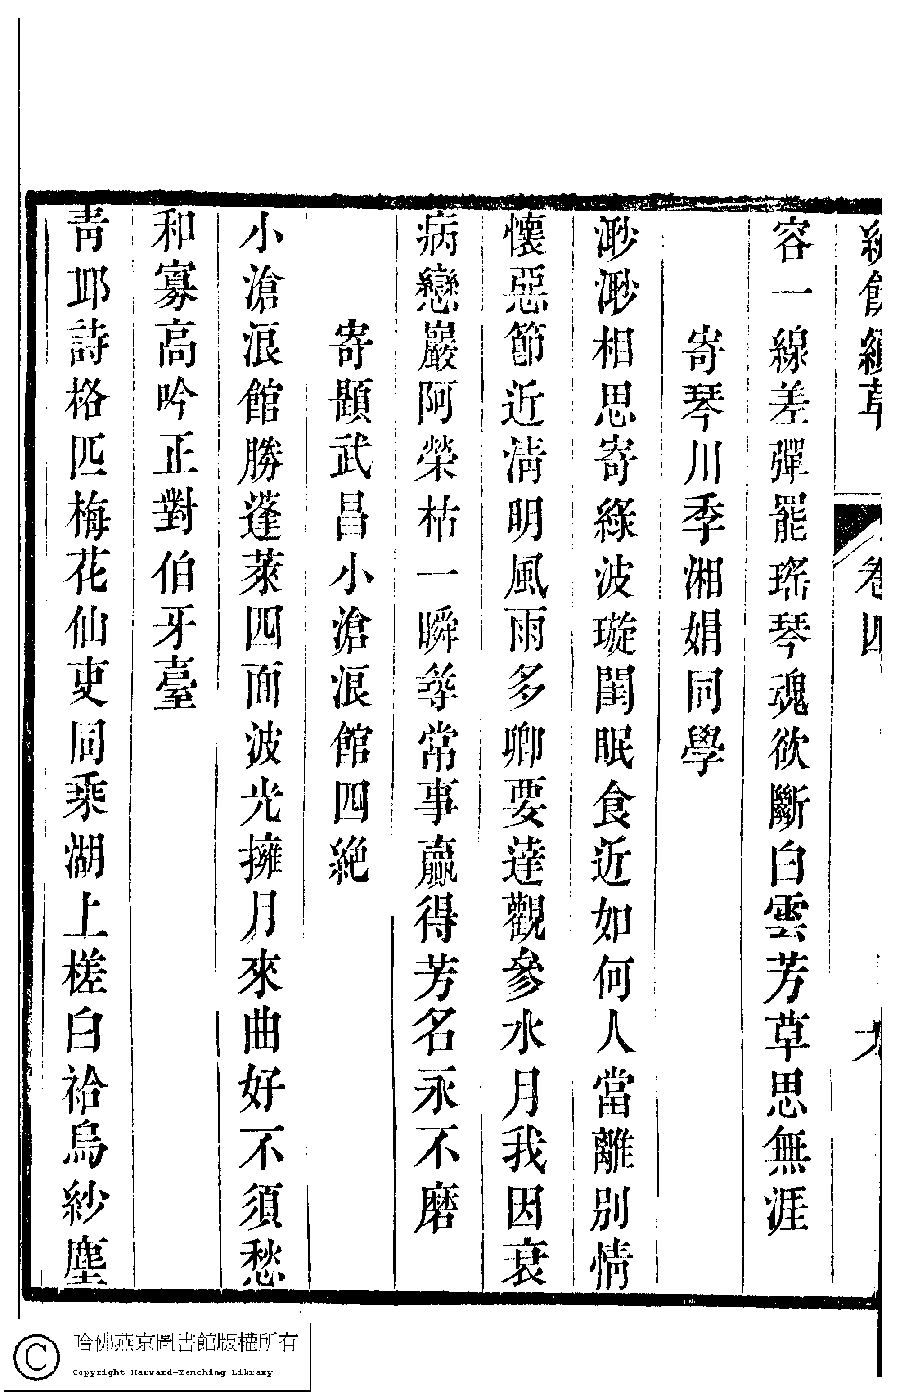 餘續草
卷四
容一線差彈罷瑤琴魂欲斷白雲芳草思無涯
寄琴川季湘娟同學
渺渺相思寄綠波璇閨眠食近如何人當離別情
懷惡節近淸明風雨多卿要達觀參水月我因衰
病戀巖阿榮枯一瞬尋常事贏得芳名永不磨
寄題武昌小滄浪館四絶
小滄浪館勝蓬萊四面波光擁月來曲好不須愁
和寡高吟正對伯牙臺
靑邱詩格匹梅花仙吏同乘湖上槎白袷烏紗塵
哈佛燕京圖書館版權所有
Copyright Harvard-Yenching Library